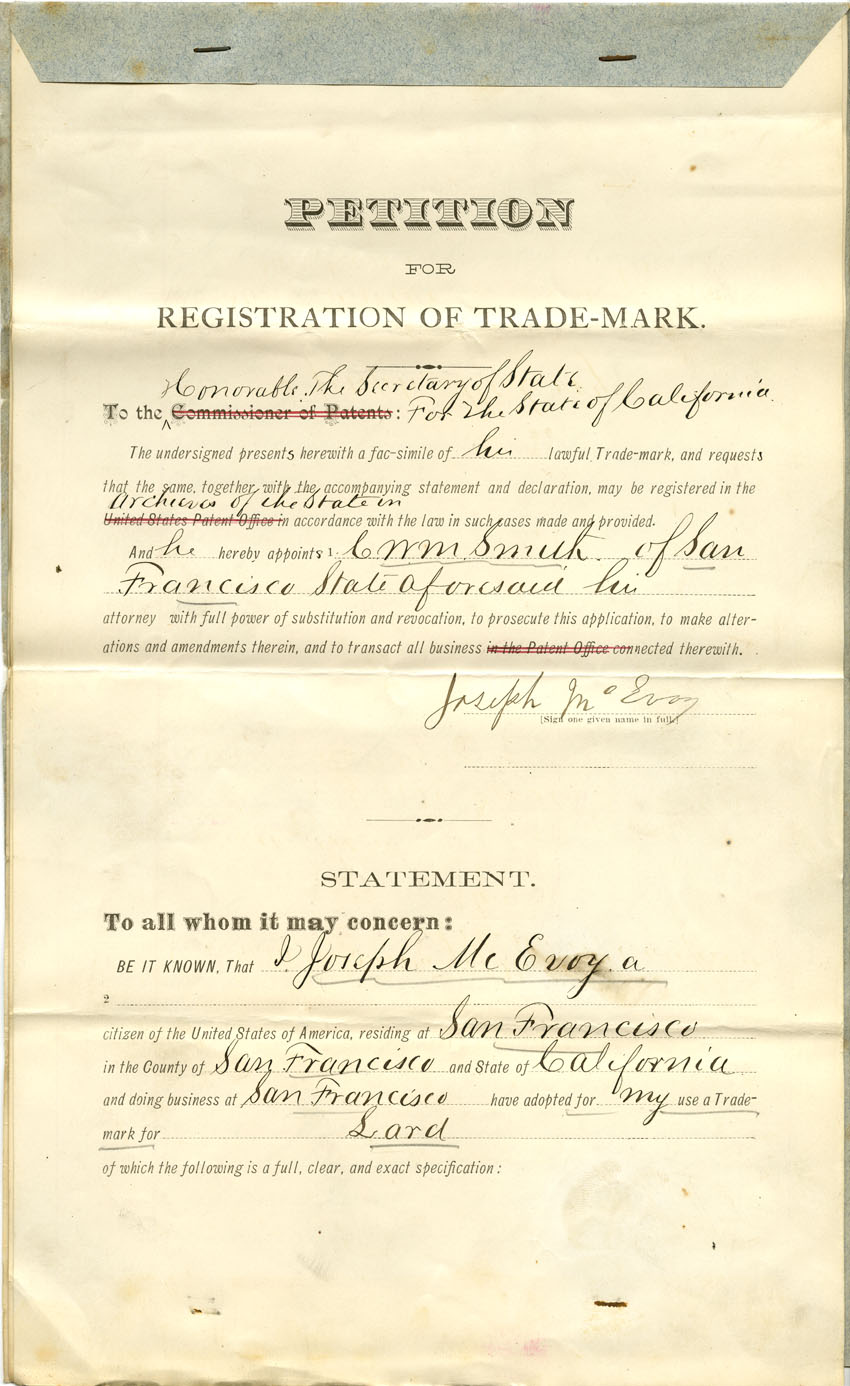 PETITION
FOR
REGISTRATION OF TRADE-MARK.
Honorable. The Secretary of State
To the Commissioner of Patents: For the State of California.
The undersigned presents herewith a fac-simile of his lawful Trade-mark, and requests
that the same, together with the accompanying statement and declaration, may be registered in the
Archives of the State in
United States Patent Office in accordance with the law in such cases made and provided.
And he hereby appoints 1. C Wm. Smith. of San
Francisco State aforesaid his
attorney with full power of substitution and revocation, to prosecute this application, to make alter-
ations and amendments therein, and to transact all business in the Patent Office connected therewith.
Joseph McEvoy
[Sign one given name in full.]
STATEMENT.
To all whom it may concern:
BE IT KNOWN, That I. Joseph Mc Evoy. a
2
citizen of the United States of America, residing at San Francisco
in the County of San Francisco and State of California
and doing business at San Francisco have adopted for my use a Trade-
mark for Lard
of which the following is a full, clear, and exact specification: